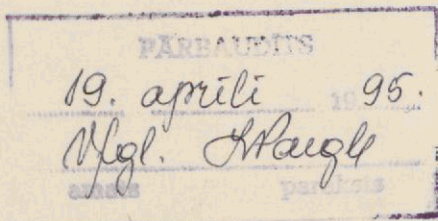 PĀRBAUDĪTS
19. aprīlī 1995.
Vfgl.
amats paraksts